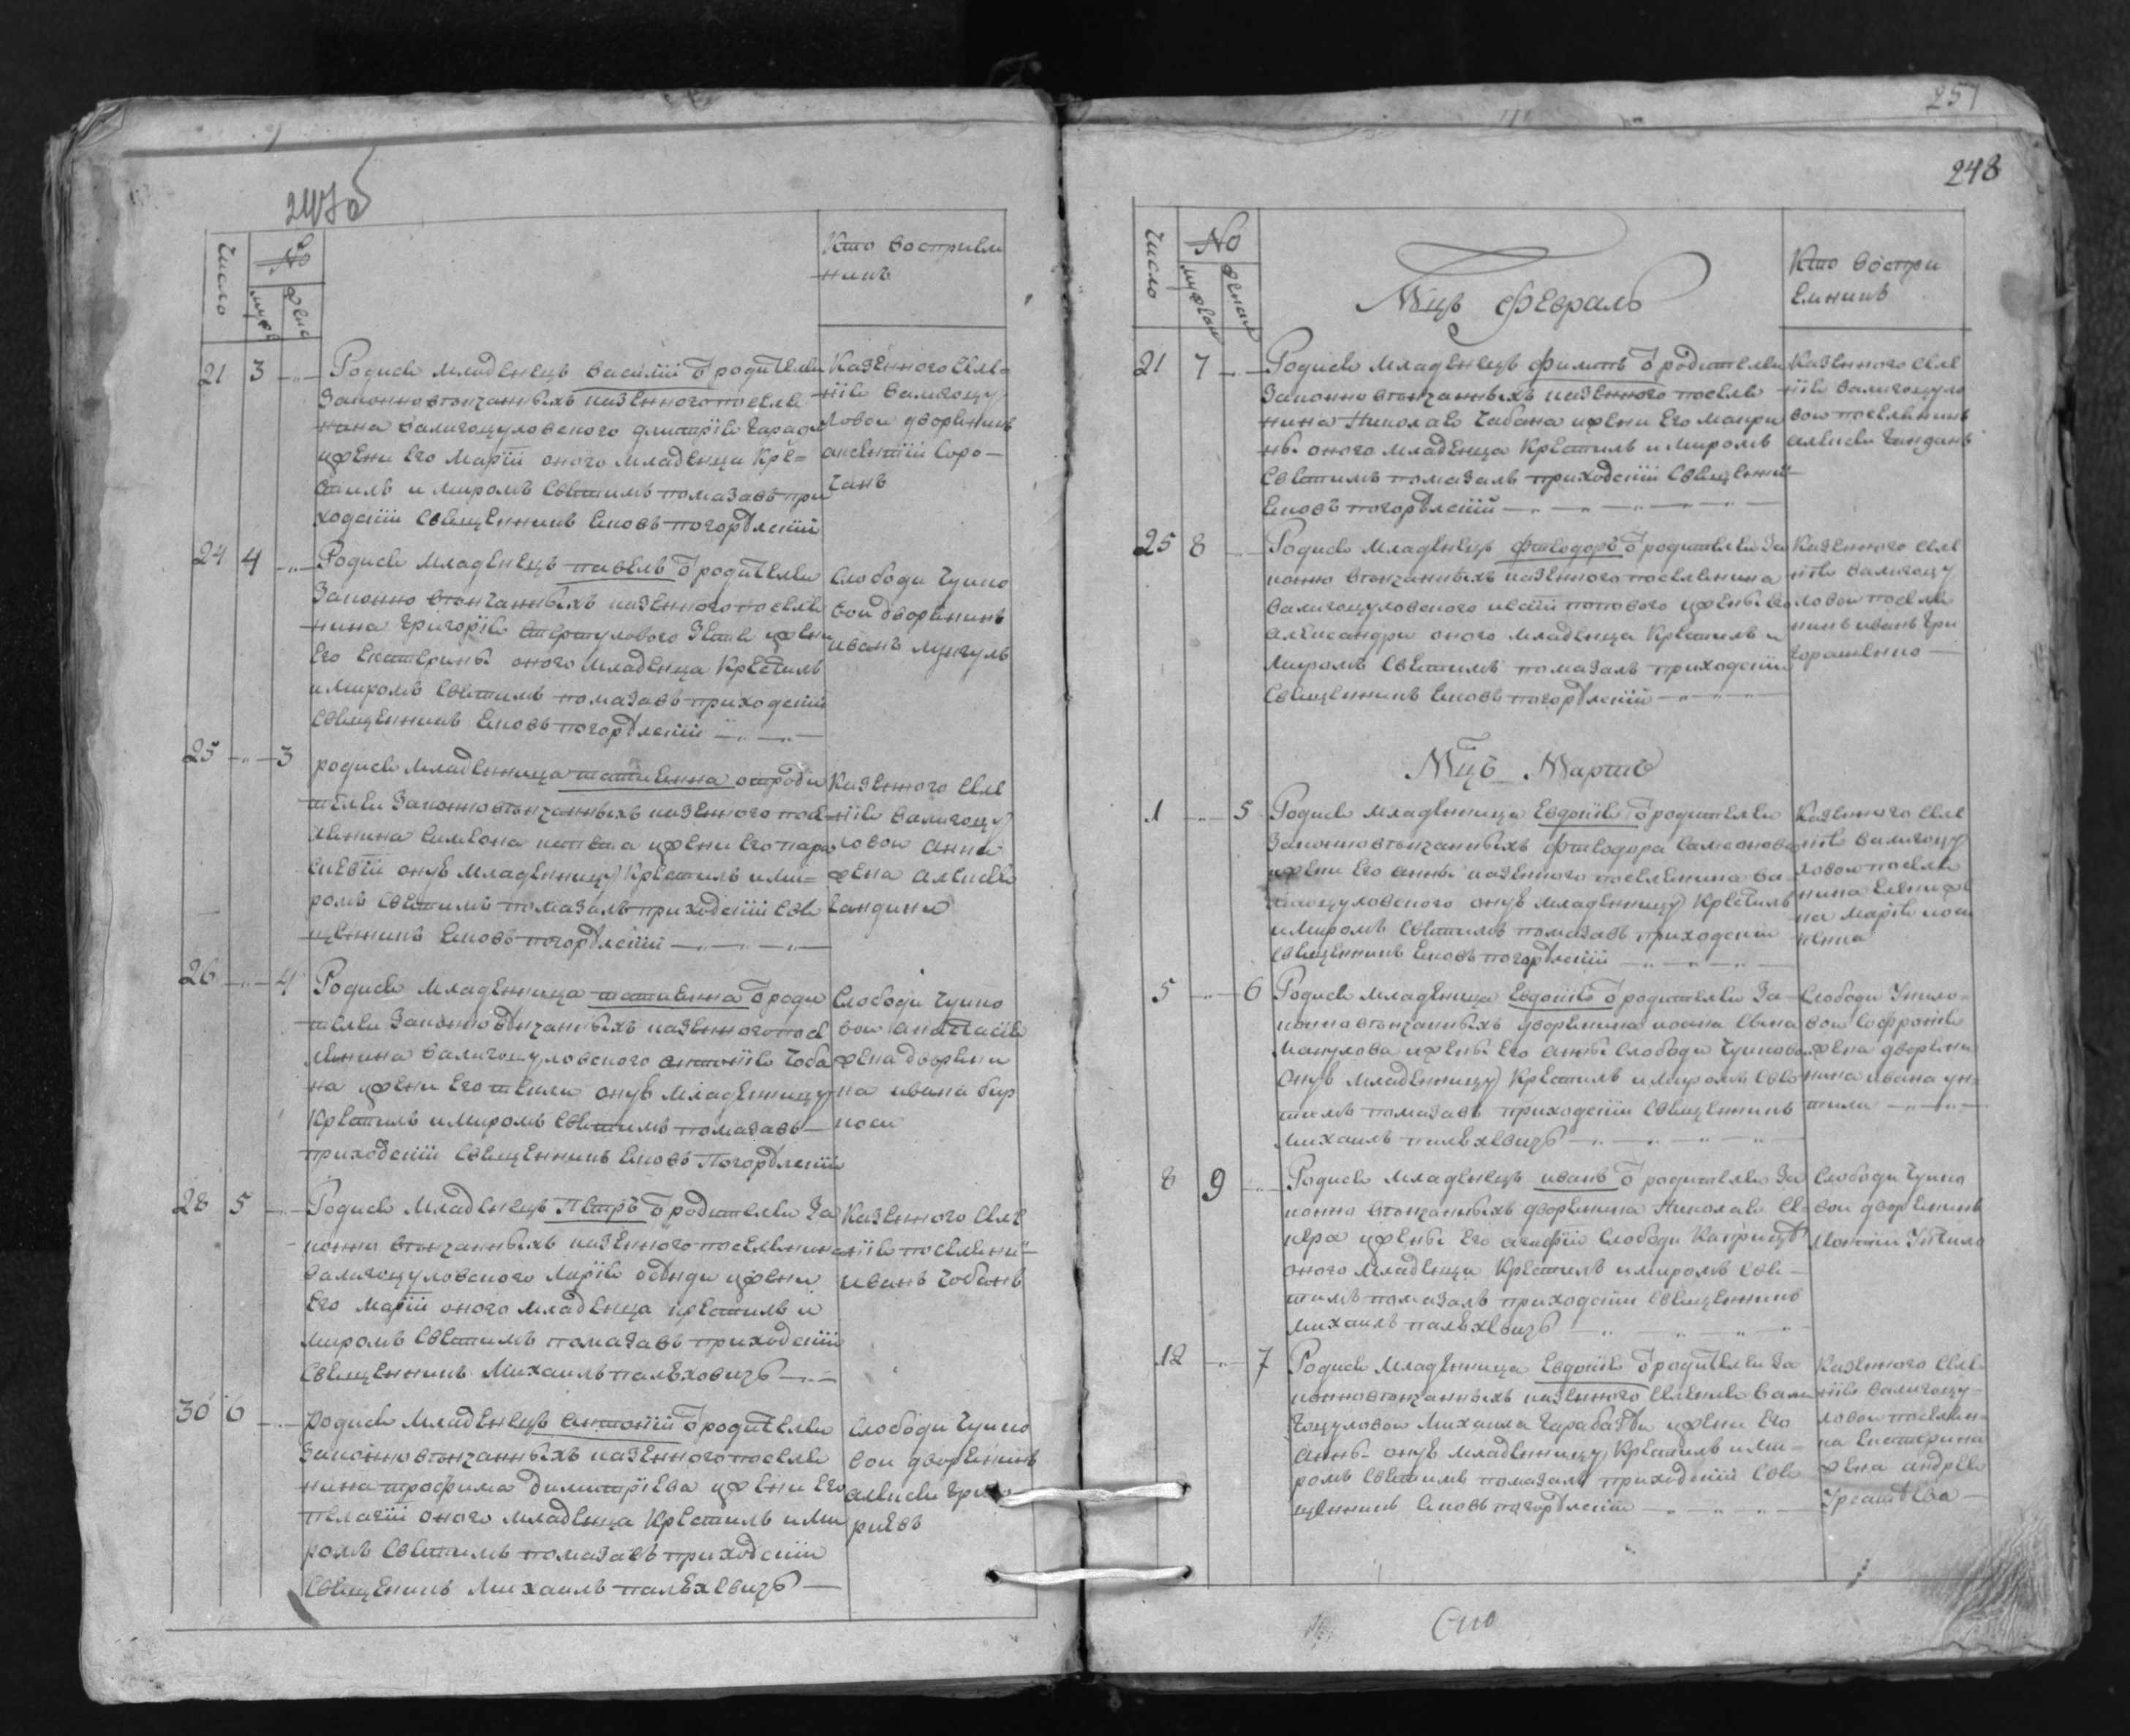 247об
Число
№
мужс
женс
Кто восприем
никъ
21 3
Родися младенецъ василій ѿ родителеи
Законновѣнчанныхъ казенного поселѣ
нина валигоцуловского дмитрія
и жени его маріи оного младенца кре=
стилъ и миромъ святимъ помазавъ при
ходскій священникъ Іяковъ погорѣлскій
Казенного селе=
нія валигоцу
ловои дворянинъ
Соро—
чанъ
24 4
Родися младенецъ павелъ ѿ родителеи
Законно вѣнчанныхъ казенного поселя
нина григорія зятя и жени
Его Екатерины оного младенца крестилъ
и миромъ святимъ помазавъ приходскій
священникъ Іяковъ погорѣлскій
Слободи чуико
вои дворянинъ
иванъ мунгулъ
25 3
родися младенница татиянна отроди
телеи Законновѣнчанныхъ казенного посе
лянина симеона и жени его пара
скевіи онуѣ младенницу крестилъ и ми=
ромъ святимъ помазалъ приходскій свя
щенникъ Іяковъ погорѣлскій
Казенного селе
нія валигоцу
ловои анна
жена алексея
гандини
26 4
Родися младенница татиянна ѿ роди
телеи Законновѣнчанныхъ казенного посе
лянина валигоцуловского антонія чоба
на и жени его онуѣ младенницу
крестилъ и миромъ святимъ помазавъ
приходскій священникъ Іяковъ Погорѣлскій
Слободи чуико
вои анастасія
жена дворяни
на ивана бир
28 5
Родися младенецъ Петръ ѿ родителеи За
конно вѣнчанныхъ казенного поселянина
валигоцуловского и жени
Его маріи оного младенца крестилъ и
миромъ святимъ помазавъ приходскій
священникъ Михаилъ палѣховичъ
Казенного селе
нія поселяни
иванъ чобанъ
30 6
родися младенецъ антоній ѿ родителеи
Законновѣнчанныхъ казенного поселя
нина трофима димитріева и жени его
пелагіи оного младенца крестилъ и ми
ромъ святимъ помазавъ приходскіи
священикъ Михаилъ палѣховичъ
Слободи чуико
вои дворянинъ
алексеи
257
248
Число
№
мужски
женски
Мцъ февраль
Кто воспри
емникъ
21 7
Родися младенецъ филипъ ѿ родителеи
Законновѣнчанныхъ казенного поселя
нина николая чабана и жени его маври
ны оного младенца крестилъ и миромъ
святимъ помазалъ приходскій священни
Іяковъ погорѣлскій
Казенного селе
нія валигоцуло
вои поселянинъ
алексеи гандинъ
25 8
Родися младенецъ фтеодоръ ѿ родителеи За
конно вѣнчанныхъ казенного поселянина
валигоцуловского попового и жены его
александри оного младенца крестилъ и
миромъ святимъ помазалъ приходскій
священникъ Іяковъ погорѣлскій
Казенного селе
нія валигоцу
ловои поселя
нинъ иванъ гри
горашенко
Мцъ Мартъ
1 5
Родися младенница Евдокія ѿ родителеи
Законновѣнчанныхъ фтеодора самсонова
и жени его анны казенного поселянина ва
лигоцуловского онуѣ младенницу крестилъ
и миромъ святимъ помазавъ приходскій
священникъ Іяковъ погорѣлскій
Казенного селе
нія валигоцу
ловои поселя
нина
на марія
5 6
Родися младенница Евдокія ѿ родителеи За
конновѣнчанныхъ дворянина сына
манулова и жены его анны слободи чуикова
онуѣ младенницу крестилъ и миромъ свя
тимъ помазавъ приходскіи священникъ
михаилъ палѣховичъ
Слободи
вои софронія
жена дворяни
нина ивана
8 9
Родися младенецъ иванъ ѿ родителеи За
конно вѣнчанныхъ дворянина николая
и жены его слободи
оного младенца крестилъ и миромъ свя
тимъ помазалъ приходскіи священникъ
михаилъ палѣховичъ
Слободи чуико
вои дворянинъ
12 7
Родися младенница Евдокія ѿ родителеи За
конновѣнчанныхъ казенного селения вали
гоцуловои михаила и жени его
анны онуѣ младенницу крестилъ и ми
ромъ святимъ помазалъ приходскій свя
щенникъ Іяковъ погорѣлскій
Казенного селе
нія валигоцу=
ловои поселян=
ка екатерина
жена андрея